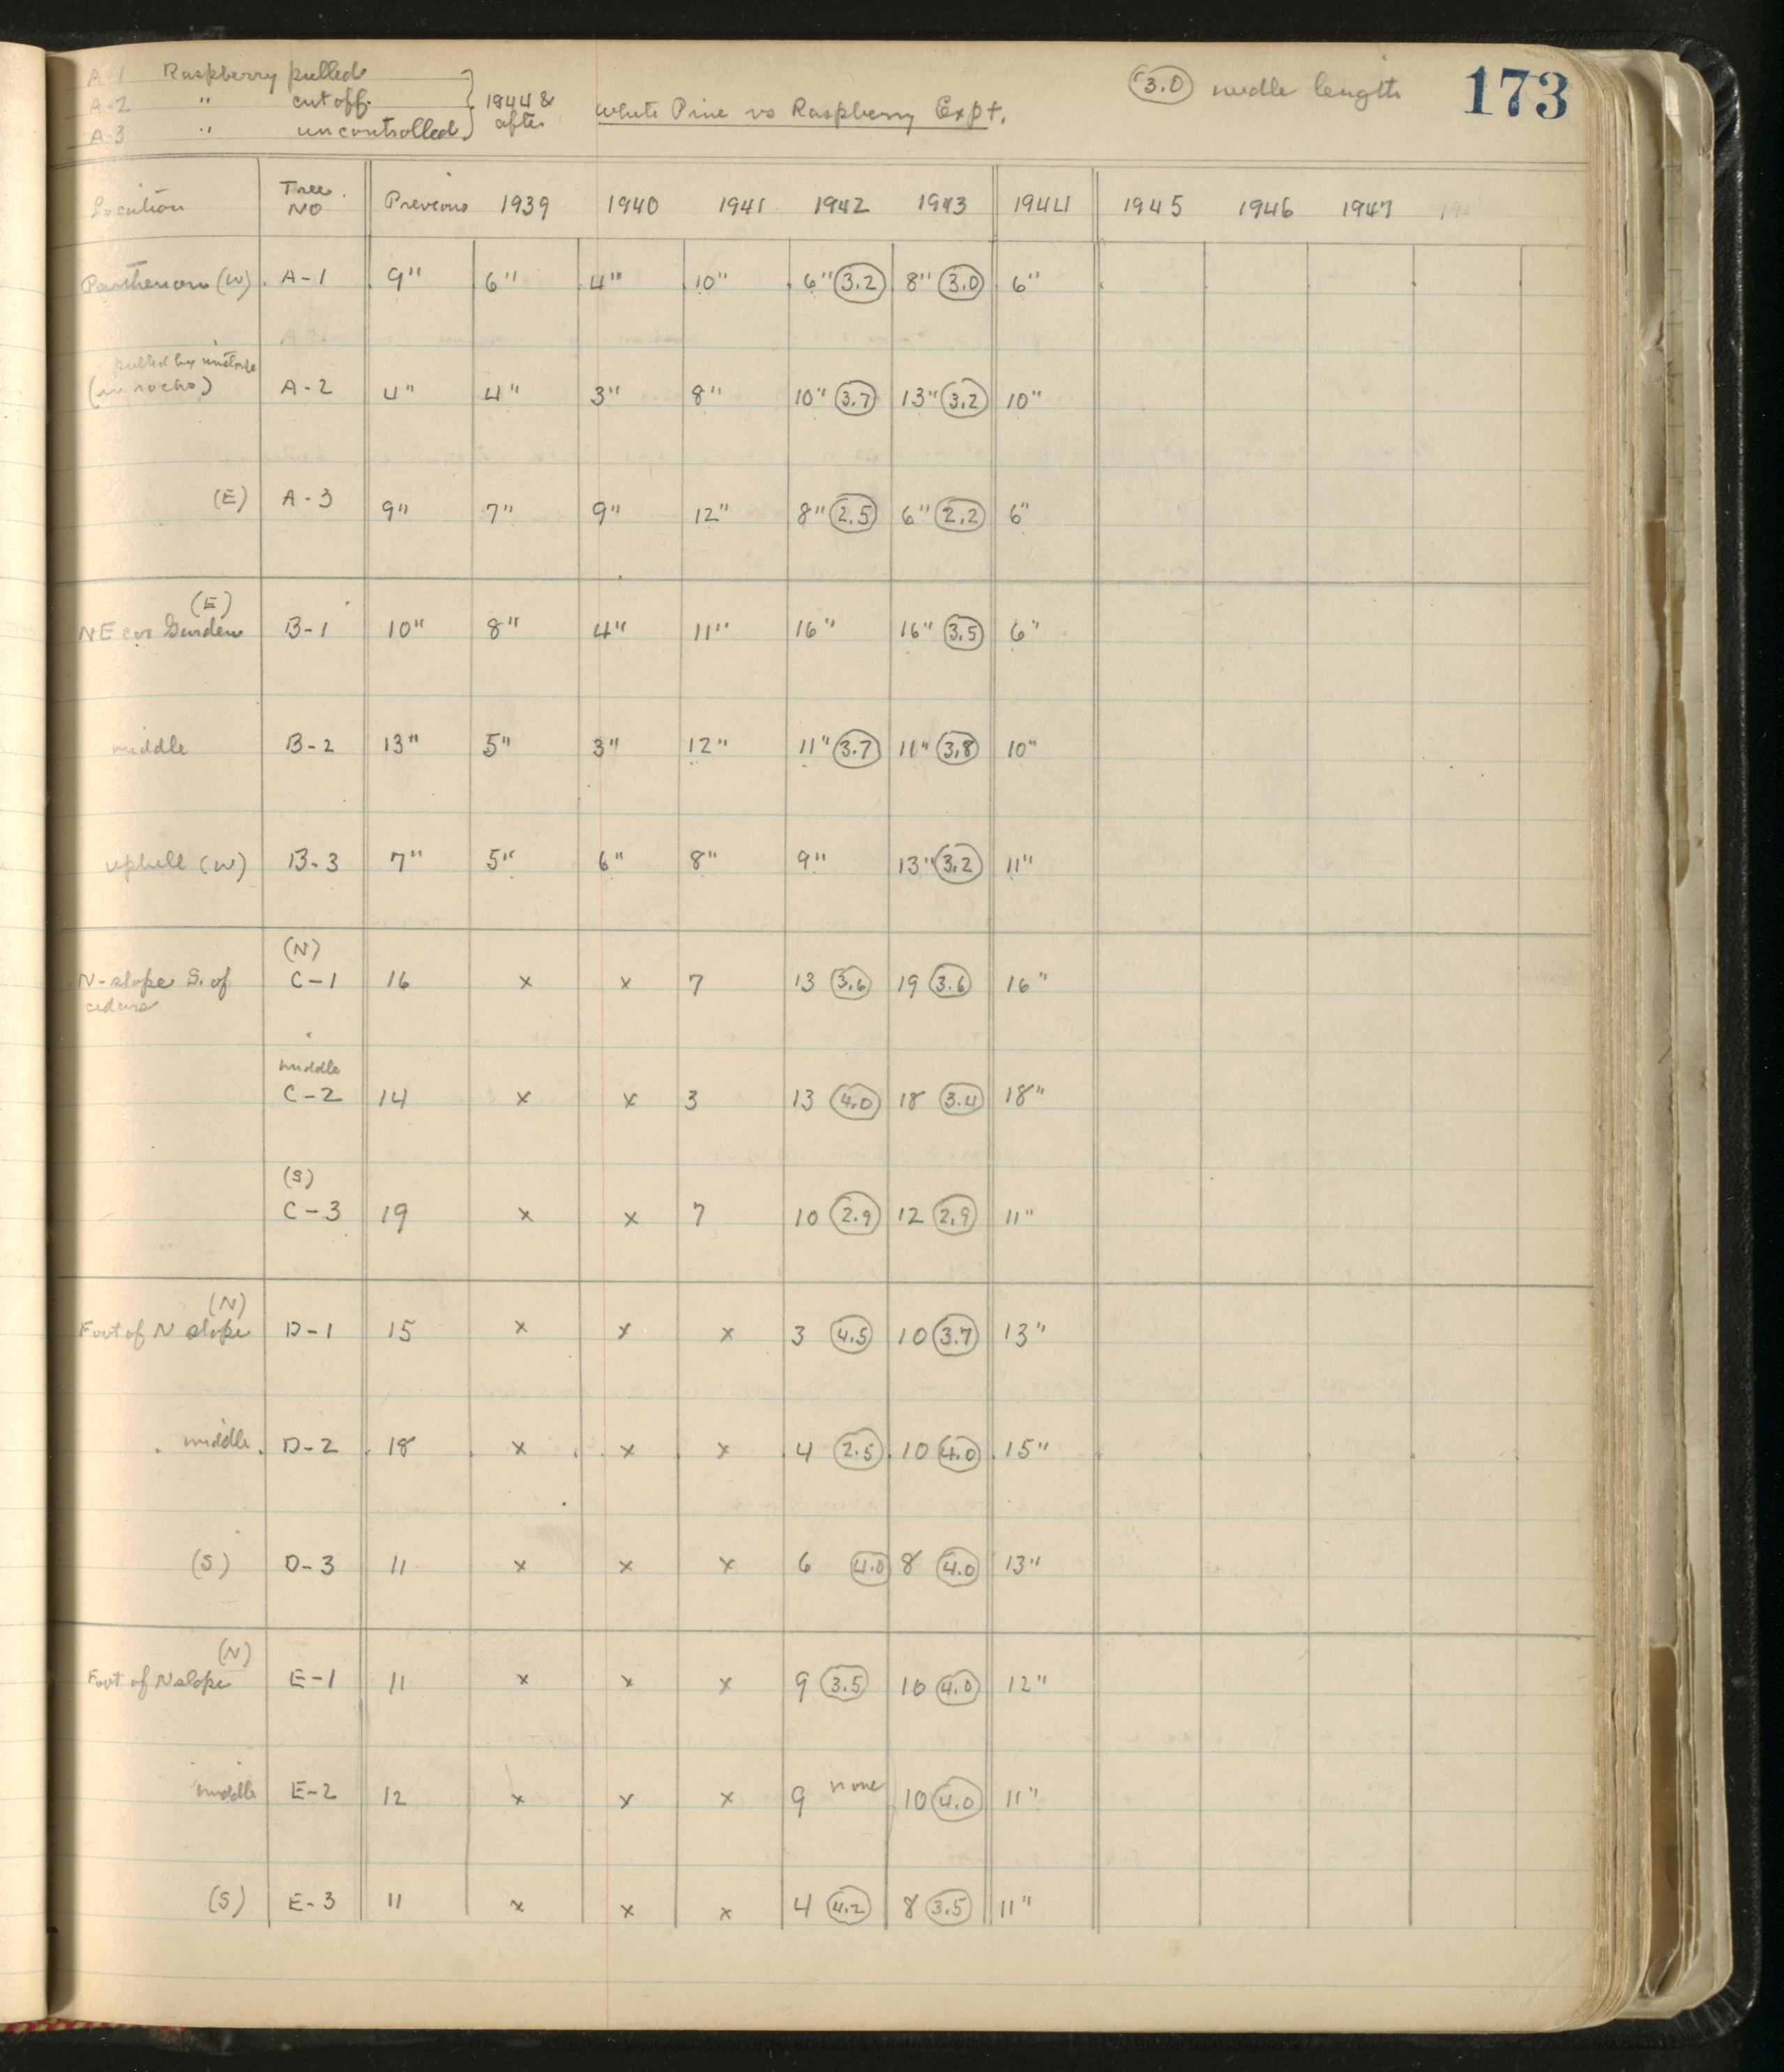 A-1 Raspberry pulled
A-2 " cut off
A-3 " uncontrolled
1944 &
after
White Pine vs Raspberry Expt.
(3.0) needle length
173
Location Tree NO Previous 1939 1940 1941 1942 1943 1944 1945 1946 1947
Parthenon (W) A-1 9" 6" 4" 10" 6" (3.2) 8" (3.0) 6"
pulled by mistake
(in rocks) A-2 4" 4" 3" 8" 10" (3.7) 13" (3.2) 10"
(E) A-3 9" 7" 9" 12" 8" (2.5) 6" (2.2) 6"
(E)
NE cor Garden B-1 10" 8" 4" 11" 16" 16" (3.5) 6"
middle B-2 13" 5" 3" 12" 11" (3.7) 11" (3.8) 10"
uphill (W) B-3 7" 5" 6" 8" 9" 13" (3.2) 11"
(N)
N-slope S. of C-1 16 x x 7 13 (3.6) 19 (3.6) 16"
cedars
middle
C-2 14 x x 3 13 (4.0) 18 (3.4) 18"
(S)
C-3 19 x x 7 10 (2.9) 12 (2.9) 11"
(N)
Foot of N slope D-1 15 x x x 3 (4.5) 10 (3.7) 13"
middle D-2 18 x x x 4 (2.5) 10 (4.0) 15"
(S) D-3 11 x x x 6 (4.0) 8 (4.0) 13"
(N)
Foot of N slope E-1 11 x x x 9 (3.5) 10 (4.0) 12"
middle E-2 12 x x x 9 none 10 (4.0) 11"
(S) E-3 11 x x x 4 (4.2) 8 (3.5) 11"